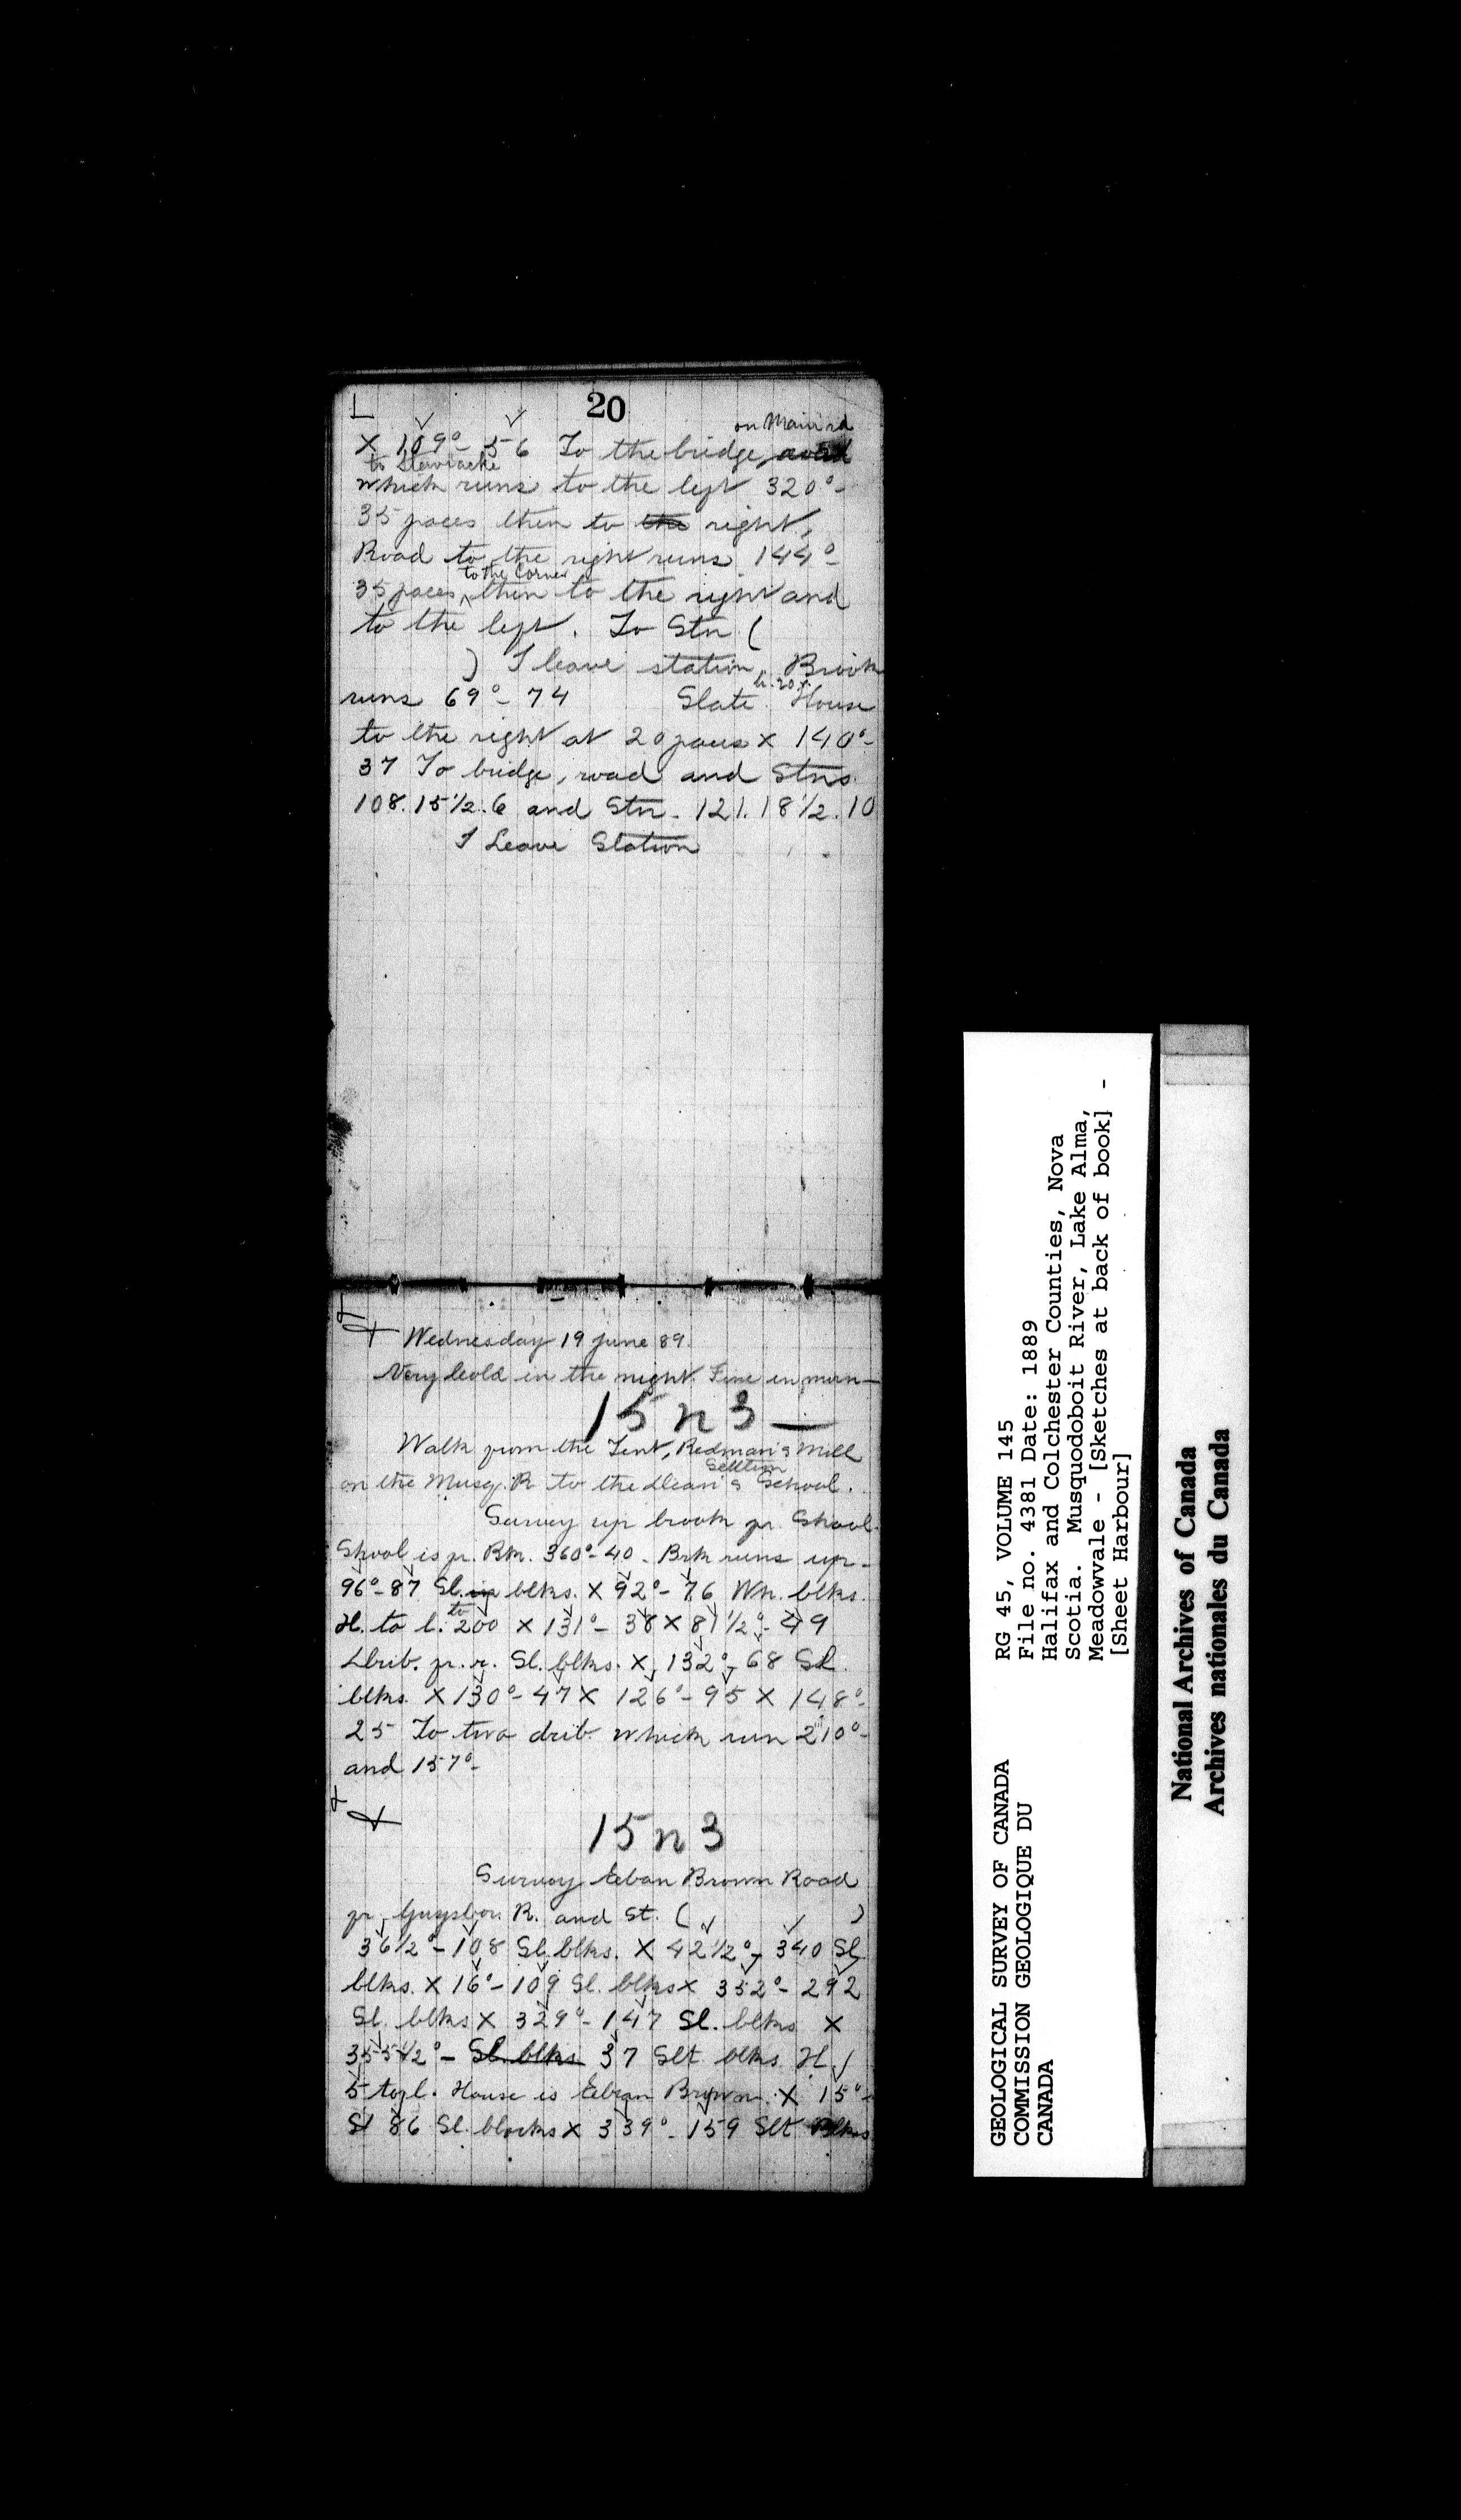 20
on Main rd
X 109° - 56 To the bridge, road
to Stewiacke
which runs to the left 320° -
35 paces then to the right,
Road to the right runs 144° -
to the Corner
35 paces, then to the right and
to the left. To Stn (
) I leave station, Brook
runs 69° - 74 Slate House
to the right at 20 paces X 140° -
37 To bridge, road and Stns
108. 15 1/2. 6 and Stn - 121. 18 1/2. 10
I Leave Station
Wednesday 19 June 89.
Very cold in the night. Fine in morn -
15 n 3 -
Walk from the Tent, Redman's Mill
Settlem
on the Musq. R to the Dean's School.
Survey up brook fr. Shool.
Shool is fr. Brk. 360° - 40 - Brk runs up -
96° - 87 Sl. in blks. X 92° - 76 Wh. blks.
H. to l. to 200 X 131° - 38 X 81 1/2° - 49
Dbrib. fr. r. Sl. blks. X 132° - 68 Sl.
blks. X 130° - 47 X 126° - 95 X 148° -
25 To two drib. which run 210° -
and 157° -
15 n 3
Survey Eban Brown Road
fr. Guysbor. R. and St. ( )
36 1/2° - 108 Sl. blks. X 42 1/2° - 340 Sl
blks. X 16° - 109 Sl. blks X 352° - 292
Sl. blks X 329° - 147 Sl. blks X
355 1/2° - Sl. blks 37 Slt blks. H.
5 to l. House is Eban Brown. X 15° -
Sl 86 Sl. blocks X 339° - 159 Slt Blks
GEOLOGICAL SURVEY OF CANADA
COMMISSION GEOLOGIQUE DU
CANADA
RG 45, VOLUME 145
File no. 4381 Date: 1889
Halifax and Colchester Counties, Nova
Scotia. Musquodoboit River, Lake Alma,
Meadowvale - [Sketches at back of book] -
[Sheet Harbour]
National Archives of Canada
Archives nationales du Canada